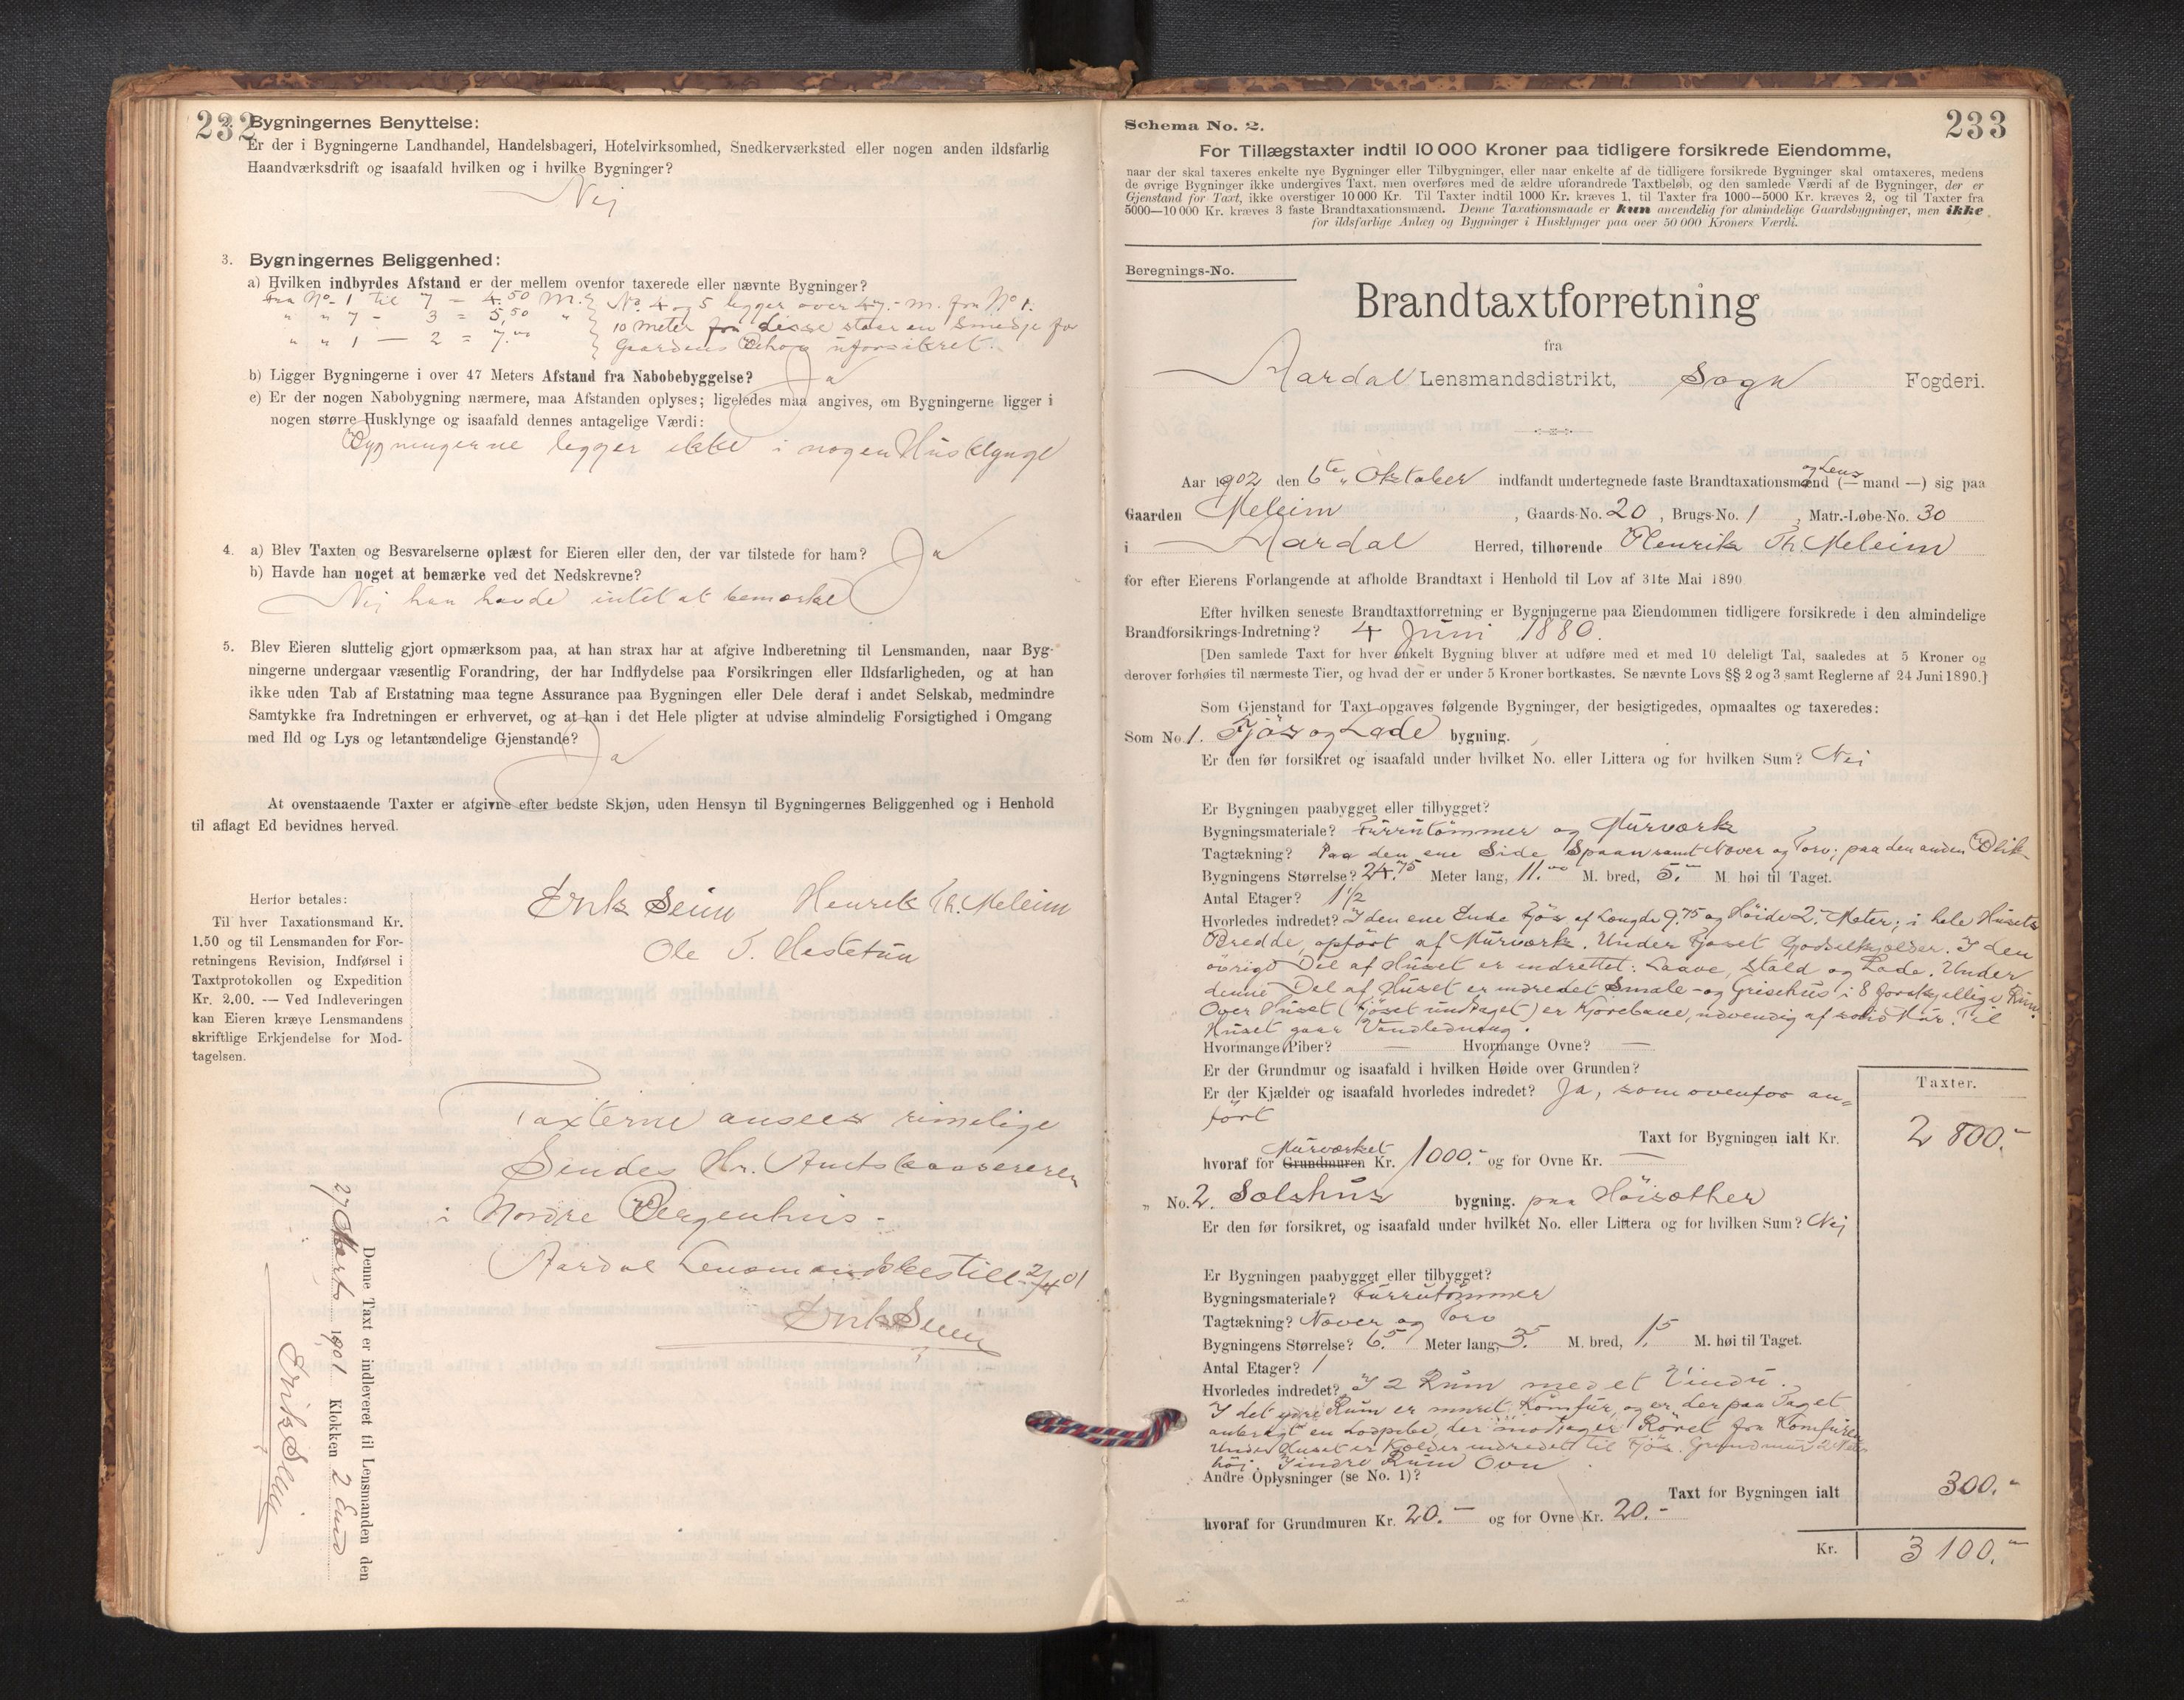 232
2. Bygningernes Benyttelse:
Er der i Bygningerne Landhandel, Handelsbageri, Hotelvirksomhed, Snedkerværksted eller nogen anden ildsfarlig
Haandværksdrift og isaafald hvilken og i hvilke Bygninger?
Nej
3. Bygningernes Beliggenhed:
a) Hvilken indbyrdes Afstand er der mellem ovenfor taxerede eller nævnte Bygninger?
Fra No 1 til 7 = 4.50 M. } No 4 og 5 legger over 47 - m. fra No 1.
" " 7 - 3 = 5,50 " } 10 meter fra disse staar en Smedje for
" " 1 — 2 = 7.00 } Gaardens Behov uforsikret.
b) Ligger Bygningerne i over 47 Meters Afstand fra Nabobebyggelse? Ja
c) Er der nogen Nabobygning nærmere, maa Afstanden oplyses; ligeledes maa angives, om Bygningerne ligger i
nogen større Husklynge og isaafald dennes antagelige Værdi:
Bygningerne legger ikke i nogen Husklynge
4. a) Blev Taxten og Besvarelserne oplæst for Eieren eller den, der var tilstede for ham? Ja
b) Havde han noget at bemærke ved det Nedskrevne?
Nej han havde intet at bemærke
5. Blev Eieren sluttelig gjort opmærksom paa, at han strax har at afgive Indberetning til Lensmanden, naar Byg-
ningerne undergaar væsentlig Forandring, der har Indflydelse paa Forsikringen eller Ildsfarligheden, og at han
ikke uden Tab af Erstatning maa tegne Assurance paa Bygningen eller Dele deraf i andet Selskab, medmindre
Samtykke fra Indretningen er erhvervet, og at han i det Hele pligter at udvise almindelig Forsigtighed i Omgang
med Ild og Lys og letantændelige Gjenstande? Ja
At ovenstaaende Taxter er afgivne efter bedste Skjøn, uden Hensyn til Bygningernes Beliggenhed og i Henhold
til aflagt Ed bevidnes herved.
Erik Seim Henrik Th. Meleim
Ole T. Hestetun
Herfor betales:
Til hver Taxationsmand Kr.
1.50 og til Lensmanden for For-
retningens Revision, Indførsel i
Taxtprotokollen og Expedition
Kr. 2.00. — Ved Indleveringen
kan Eieren kræve Lensmandens
skriftlige Erkjendelse for Mod-
tagelsen.
Taxterne ansees rimelige
Sendes Hr. Amtskasserer
i Nordre Bergenhus -
Aardal Lensmandsbestill. 2/4 01
Erik Seim
Denne Taxt er indleveret til Lensmanden den
27 Marts 1901 Klokken 2 Emd
Erik Seim
233
Schema No. 2.
For Tillægstaxter indtil 10 000 Kroner paa tidligere forsikrede Eiendomme,
naar der skal taxeres enkelte nye Bygninger eller Tilbygninger, eller naar enkelte af de tidligere forsikrede Bygninger skal omtaxeres, medens
de øvrige Bygninger ikke undergives Taxt, men overføres med de ældre uforandrede Taxtbeløb, og den samlede Værdi af de Bygninger, der er
Gjenstand for Taxt, ikke overstiger 10 000 Kr. Til Taxter indtil 1000 Kr. kræves 1, til Taxter fra 1000—5000 Kr. kræves 2, og til Taxter fra
5000—10 000 Kr. kræves 3 faste Brandtaxationsmænd. Denne Taxationsmaade er kun anvendelig for almindelige Gaardsbygninger, men ikke
for ildsfarlige Anlæg og Bygninger i Husklynger paa over 50 000 Kroners Værdi.
Beregnings-No.
Brandtaxtforretning
fra
Aardal Lensmandsdistrikt, Sogn Fogderi.
Aar 1902 den 6te Oktober indfandt undertegnede faste Brandtaxationsmænd (— mand —) og Lens sig paa
Gaarden Meleim, Gaards-No. 20, Brugs-No. 1, Matr.-Løbe-No. 30
i Aardal Herred, tilhørende Henrik Th. Meleim
for efter Eierens Forlangende at afholde Brandtaxt i Henhold til Lov af 31te Mai 1890
Efter hvilken seneste Brandtaxtforretning er Bygningerne paa Eiendommen tidligere forsikrede i den almindelige
Brandforsikrings-Indretning? 4 Juni 1880.
[Den samlede Taxt for hver enkelt Bygning bliver at udføre med et med 10 deleligt Tal, saaledes at 5 Kroner og
derover forhøies til nærmeste Tier, og hvad der er under 5 Kroner bortkastes. Se nævnte Lovs §§ 2 og 3 samt Reglerne af 24 Juni 1890.]
Som Gjenstand for Taxt opgaves følgende Bygninger, der besigtigedes, opmaaltes og taxeredes:
Som No 1. Fjös og Lade bygning.
Er den før forsikret og isaafald under hvilket No. eller Littera og for hvilken Sum? Nei
Er Bygningen paabygget eller tilbygget?
Bygningsmateriale? Furrutömmer og Murværk
Tagtækning? Paa den ene Side Spaan samt Næver og Torv; paa den anden Blik
Bygningens Størrelse? 24.75 Meter lang, 11.00 M. bred, 5.— M. høi til Taget.
Antal Etager? 1 1/2
Hvorledes indredet? I den ene Ende Fjös af Længde 9.75 og Höide 2.- Meter; i hele Husets
Bredde, opfört af Murværk. Under Fjöset Gjödselkjælder. I den
övrige Del af Huset er indrettet: Laave, Stald og Lade. Under
denne Del af Huset er indredet Smale- og Grisehus i 8 forskjellige Rum.
Over Huset (Fjöset undtaget) er Kjörebane, udvendig af solid Mur. Til
Huset gaar Vandledning.
Hvormange Piber? — Hvormange Ovne? —
Er der Grundmur og isaafald i hvilken Høide over Grunden?
Er der Kjælder og isaafald hvorledes indredet? Ja, som ovenfor an-
fört
Taxter.
Taxt for Bygningen ialt Kr. 2 800.-
Murværket
hvoraf for Grundmuren Kr. 1000.- og for Ovne Kr. —
" No. 2. Sælshus bygning. paa Höisæther
Er den før forsikret, og isaafald under hvilket No. eller Littera og for hvilken Sum? Nej
Er Bygningen paabygget eller tilbygget?
Bygningsmateriale? Furrutömmer
Tagtækning? Næver og Torv
Bygningens Størrelse? 6.5 Meter lang, 3.5 M. bred, 1.5 M. høi til Taget.
Antal Etager? 1
Hvorledes indredet? I 2 Rum med et Vindu.
I det ydre Rum er muret Komfur, og er der paa Taget
anbragt en Lodpibe, der modtager Röret fra Komfuren
Under Huset er Kjelder indredet til Fjös. Grundmur 2 Meter
höi. I indre Rum Ovn
Andre Oplysninger (se No. 1)?
Taxt for Bygningen ialt 300.-
hvoraf for Grundmuren Kr. 20.- og for Ovne Kr. 20.-
Kr. 3 100.-